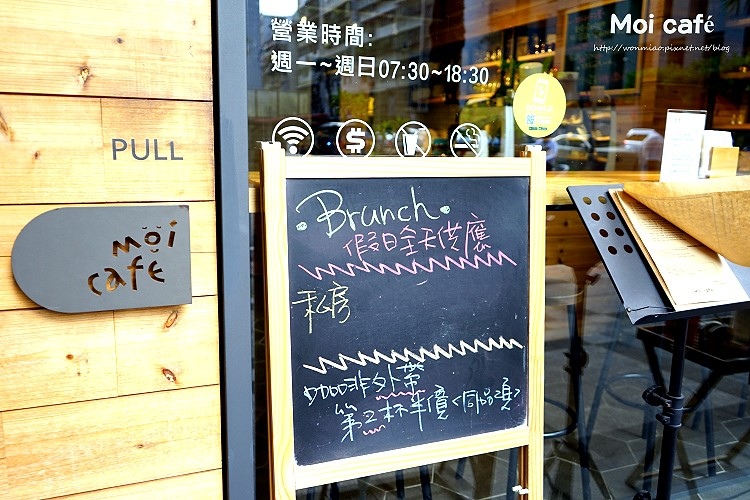 營業時間:
週一~週日07:30~18:30
Moi café
http://wonmiao.pixnet.net/blog
PULL
moi
café
Brunch
假日全天供應
私房
咖啡外帶
第二杯半價<同品項>